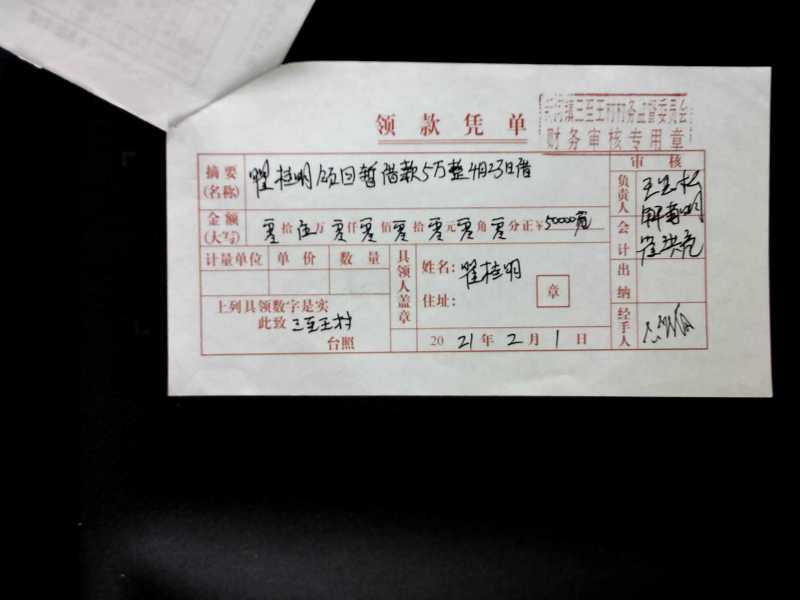 镇三至王村村务监督委员会
财务审核专用章
领款凭单
摘要(名称) 翟桂明领回暂借款5万整4月23日借
审核
金额(大写) 零拾伍万零仟零佰零拾零元零角零分正¥50000元
计量单位 单价 数量
具领人盖章
姓名:翟桂明
住址:
章
上列具领数字是实
此致 三至王村
台照
2021年2月1日
负责人
会计 崔洪亮
出纳
经手人